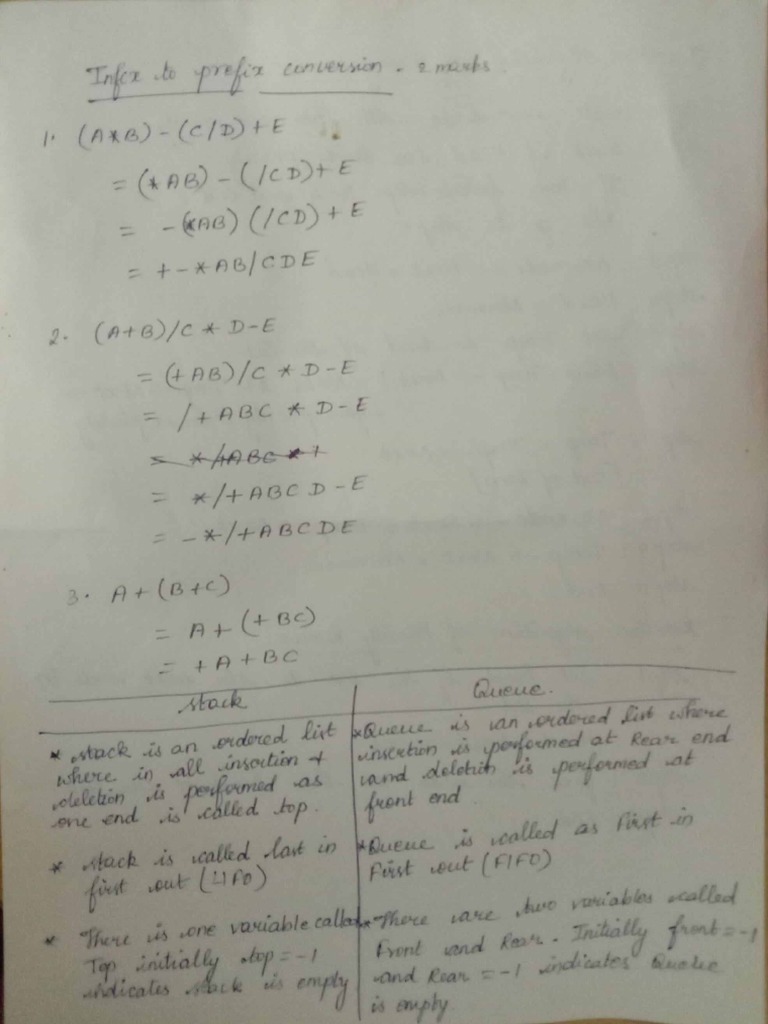 Infix to prefix conversion - 2 marks
1. (A*B) - (C/D) + E
= (*AB) - (/CD) + E
= -(*AB) (/CD) + E
= +-*AB/CDE
2. (A+B)/C * D-E
= (+AB)/C * D-E
= /+ABC * D-E
= */+ABC * +
= */+ABCD-E
= -*/+ABCDE
3. A+(B+C)
= A+(+BC)
= +A+BC
stack
* stack is an ordered list
where in all insertion &
deletion is performed as
one end is called top.
* stack is called last in
first out (LIFO)
* There is one variable called
Top initially top = -1
indicates stack is empty
Queue.
* Queue is an ordered list where
insertion is performed at Rear end
and deletion is performed at
front end
* Queue is called as First in
First out (FIFO)
* There are two variables called
Front and Rear. Initially front = -1
and Rear = -1 indicates Queue
is empty.